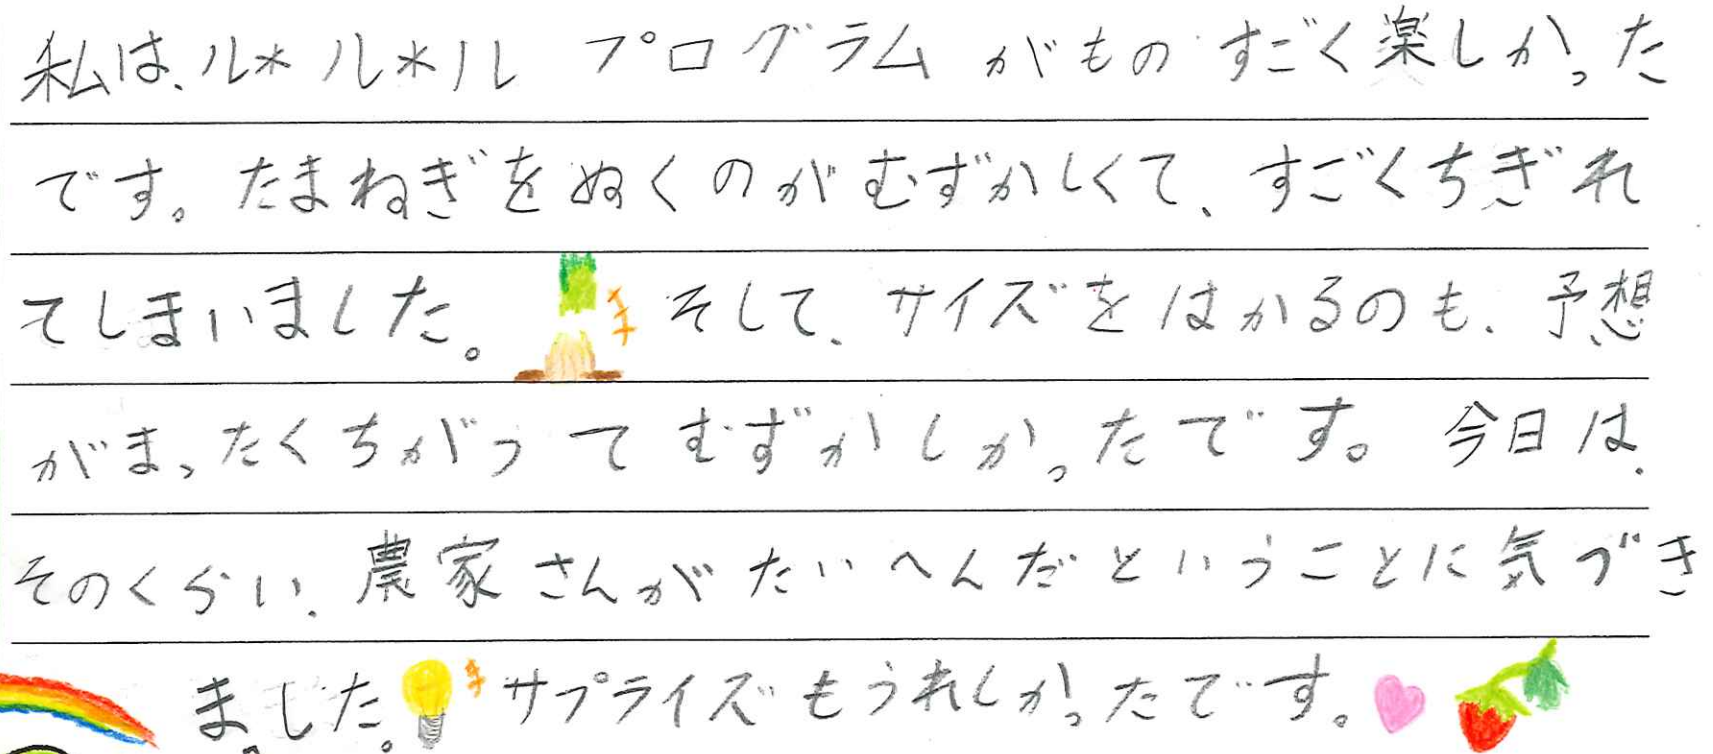 私は、ル*ル*ル プログラムがものすごく楽しかった
です。たまねぎをぬくのがむずかしくて、すごくちぎれ
てしまいました。そして、サイズをはかるのも、予想
がまったくちがってむずかしかったです。今日は、
そのくらい、農家さんがたいへんだということに気づき
ました。サプライズもうれしかったです。